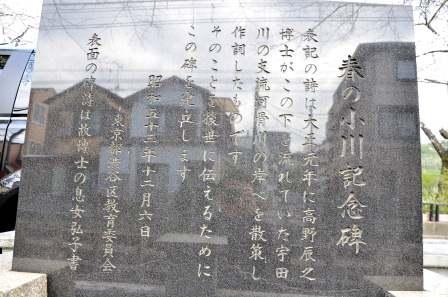 春の小川記念碑
表記の詩は大正元年に高野辰之
博士がこの下を流れていた宇田
川の支流河骨川の岸べを散策し
作詞したものです
そのことを後世に伝えるために
この碑を建立します
昭和五十三年十二月六日
東京都渋谷区教育委員会
表面の詩は故博士の息女弘子書